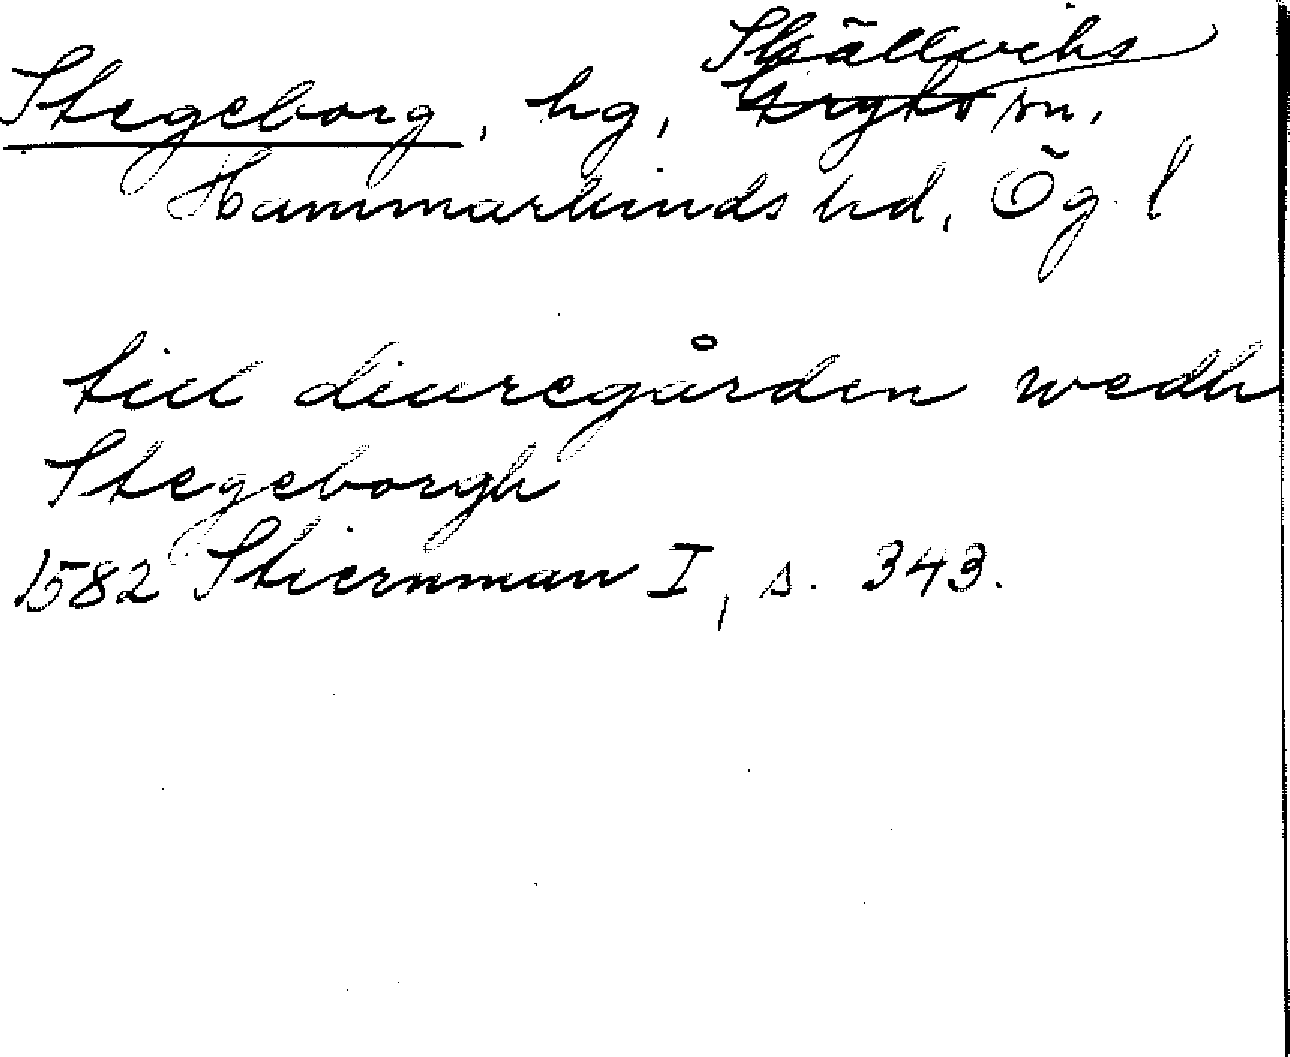 Skällviks
Stegeborg, hg, Gryts sn.
Hammarkinds hd, Ög. l
till diuregården wedh
Stegeborgh
1582 Stiernman I, s. 343.